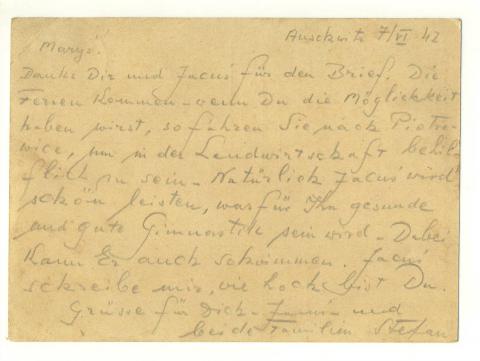 Auschwitz 7/VI 42
Maryś!
Danke Dir und Jacuś für den Brief. Die
Ferien kommen - wenn Du die Möglichkeit
haben wirst, so fahren Sie nach Piotro-
wice, um in der Landwirtschaft behil-
flich zu sein - Natürlich Jacuś wird
schön leisten, was für Ihn gesunde
und gute Gimnastik sein wird - Dabei
kann Er auch schwimmen. Jacuś
schreibe mir, wie hoch bist Du.
Grüsse für Dich - und
beide Familien Stefan